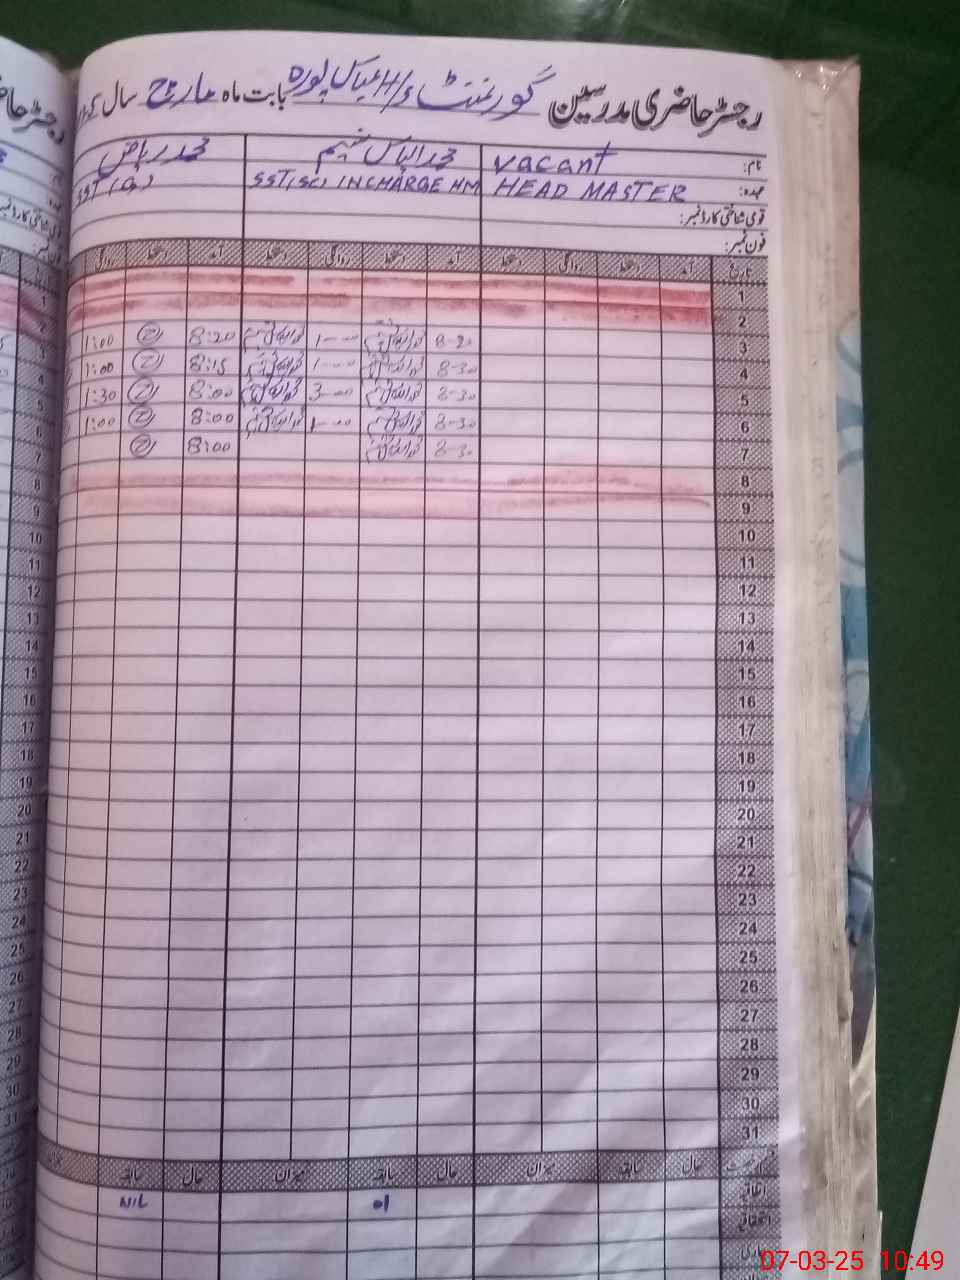 رجسٹر حاضری مدرسین گورنمنٹ H/S عباس پورہ بابت ماہ مارچ سال
نام: vacant محمد الیاس محمد ریاض
عہدہ: HEAD MASTER SST(SC) INCHARGE HM SST (G)
قومی شناختی کارڈ نمبر:
فون نمبر:
تاریخ آمد دستخط روانگی دستخط آمد دستخط روانگی دستخط آمد دستخط روانگی
1
2
3 8-30 1-00 8:20 1:00
4 8-30 1-00 8:15 1:00
5 8-30 3-00 8:00 1:30
6 8-30 1-00 8:00 1:00
7 8-30 8:00
8
9
10
11
12
13
14
15
16
17
18
19
20
21
22
23
24
25
26
27
28
29
30
31
حال سابقہ میزان حال سابقہ میزان حال سابقہ میزان
اتفاقیہ 01 NIL
07-03-25 10:49